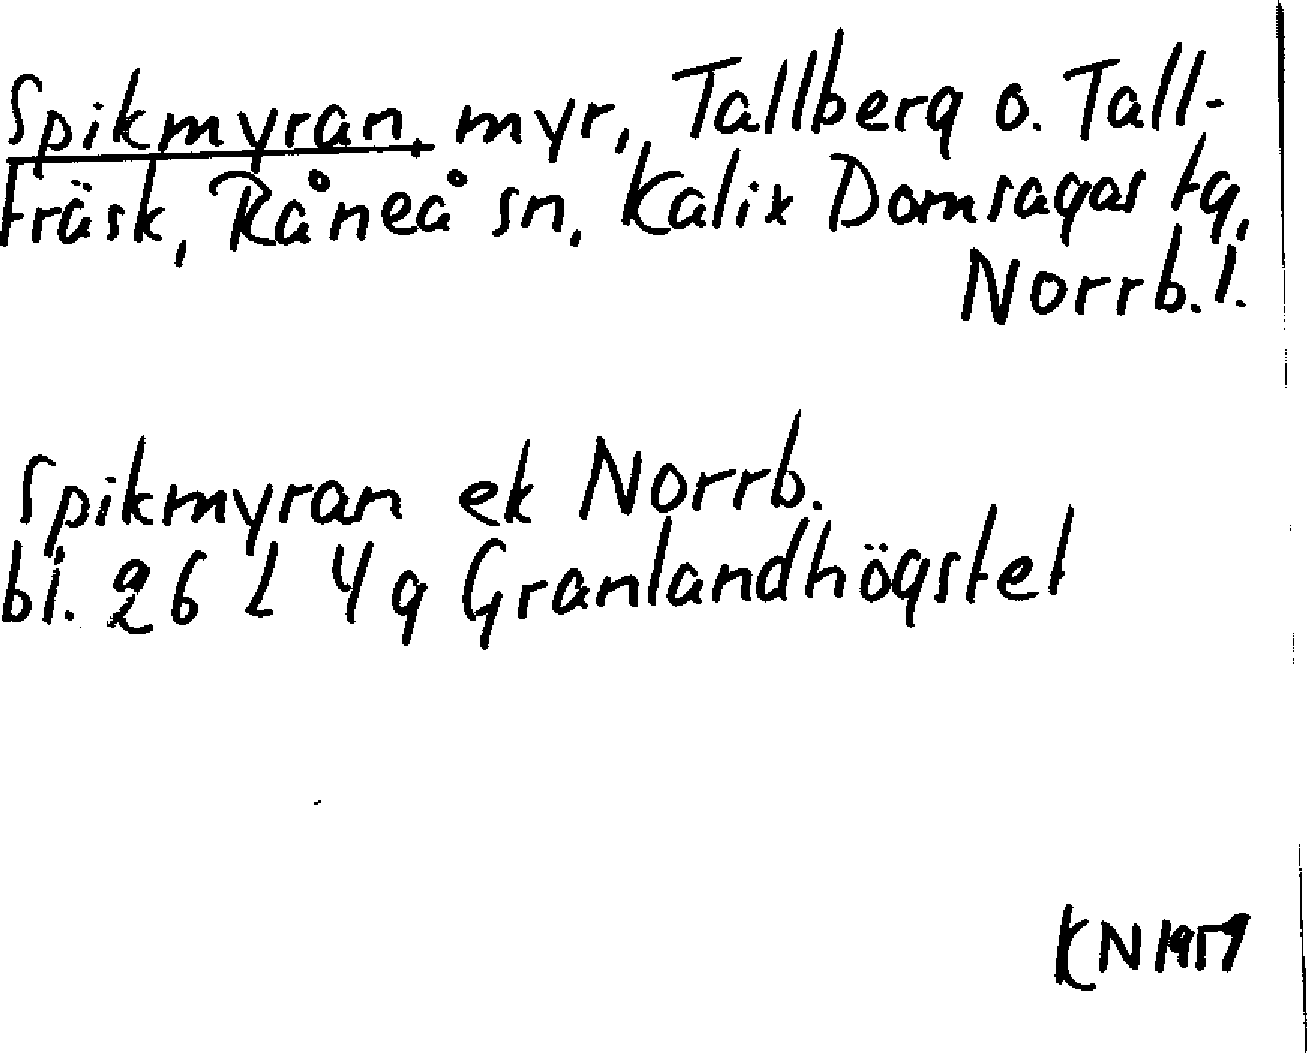 Spikmyran, myr, Tallberg o. Tall-
träsk, Råneå sn, Kalix Domsagas tg,
Norrb. l.
Spikmyran ek Norrb.
bl. 26 L 4 g Granlandhögstet
KN